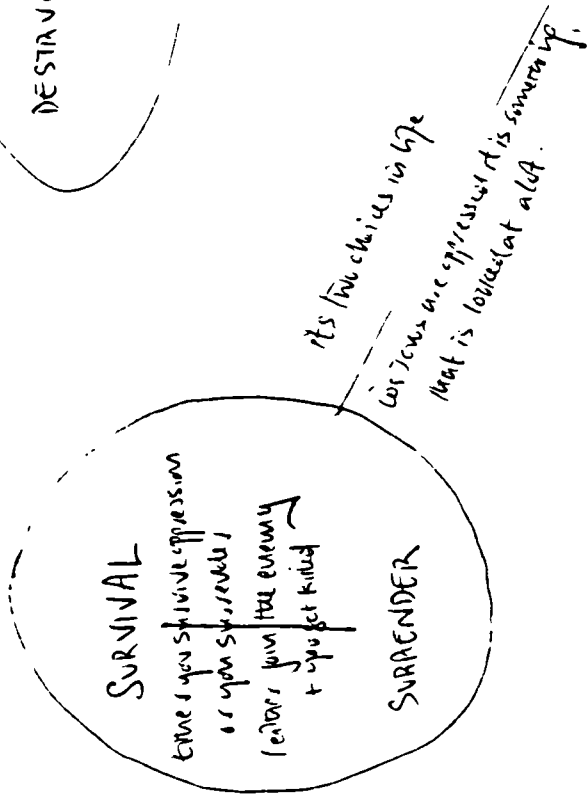 DESTRU
SURVIVAL
either you survive oppression
or you surrender
(either join the enemy
+ you get killed
SURRENDER
its two choices in life
cos Jews are oppressed it is something
that is looked at alot.